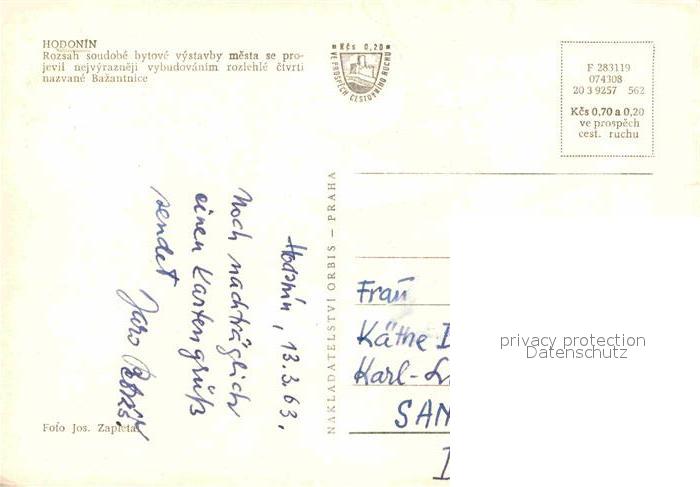 HODONÍN
Rozsah soudobé bytové výstavby města se pro-
jevil nejvýrazněji vybudováním rozlehlé čtvrti
nazvané Bažantnice
Kčs 0,20
VE PROSPĚCH CESTOVNÍHO RUCHU
F 283119
074308
20 3 9257 562
Kčs 0,70 a 0,20
ve prospěch
cest. ruchu
NAKLADATELSTVÍ ORBIS – PRAHA
Hodonín, 13.3.63.
Noch nachträglich
einen Kartengruß
sendet
Jaro
Frau
Käthe
Karl-
SAN
privacy protection
Datenschutz
Foto Jos. Zapletal